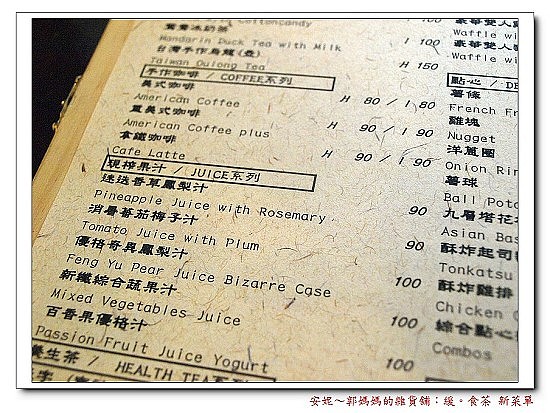 Cottoncandy
鴛鴦冰奶茶
Mandarin Duck Tea with Milk I 100
台灣手作烏龍(壺)
Taiwan Oulong Tea H 150
手作咖啡 / COFFEE系列
美式咖啡
American Coffee H 80 / I 80
重美式咖啡
American Coffee plus H 90 / I 90
拿鐵咖啡
Cafe Latte H 90 / I 90
現榨果汁 / JUICE系列
迷迭香草鳳梨汁
Pineapple Juice with Rosemary 90
消暑蕃茄梅子汁
Tomato Juice with Plum 90
優格奇異鳳梨汁
Feng Yu Pear Juice Bizarre Case 100
新纖綜合蔬果汁
Mixed Vegetables Juice 100
百香果優格汁
Passion Fruit Juice Yogurt 100
養生茶 / HEALTH TEA系列
豪華雙人
Waffle w
豪華雙人
Waffle w
點心 / DE
薯條
French Fr
雞塊
Nugget
洋蔥圈
Onion Rin
薯球
Ball Pota
九層塔花
Asian Bas
酥炸起司
Tonkatsu
酥炸雞排
Chicken
綜合點心
Combos
安妮～郭媽媽的雜貨舖：緩。食茶 新菜單